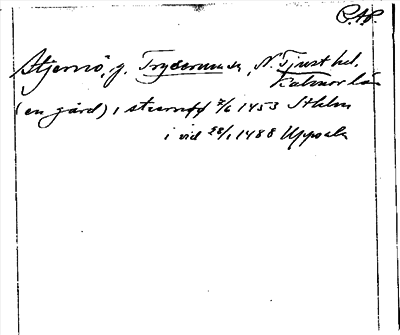 C.AP
Stjernö, g. Tryserums sn, N. Tjust hd.
Kalmar län
(en gård), i 7/6 1453 Sthlm
i vid 28/1 1488 Uppsala